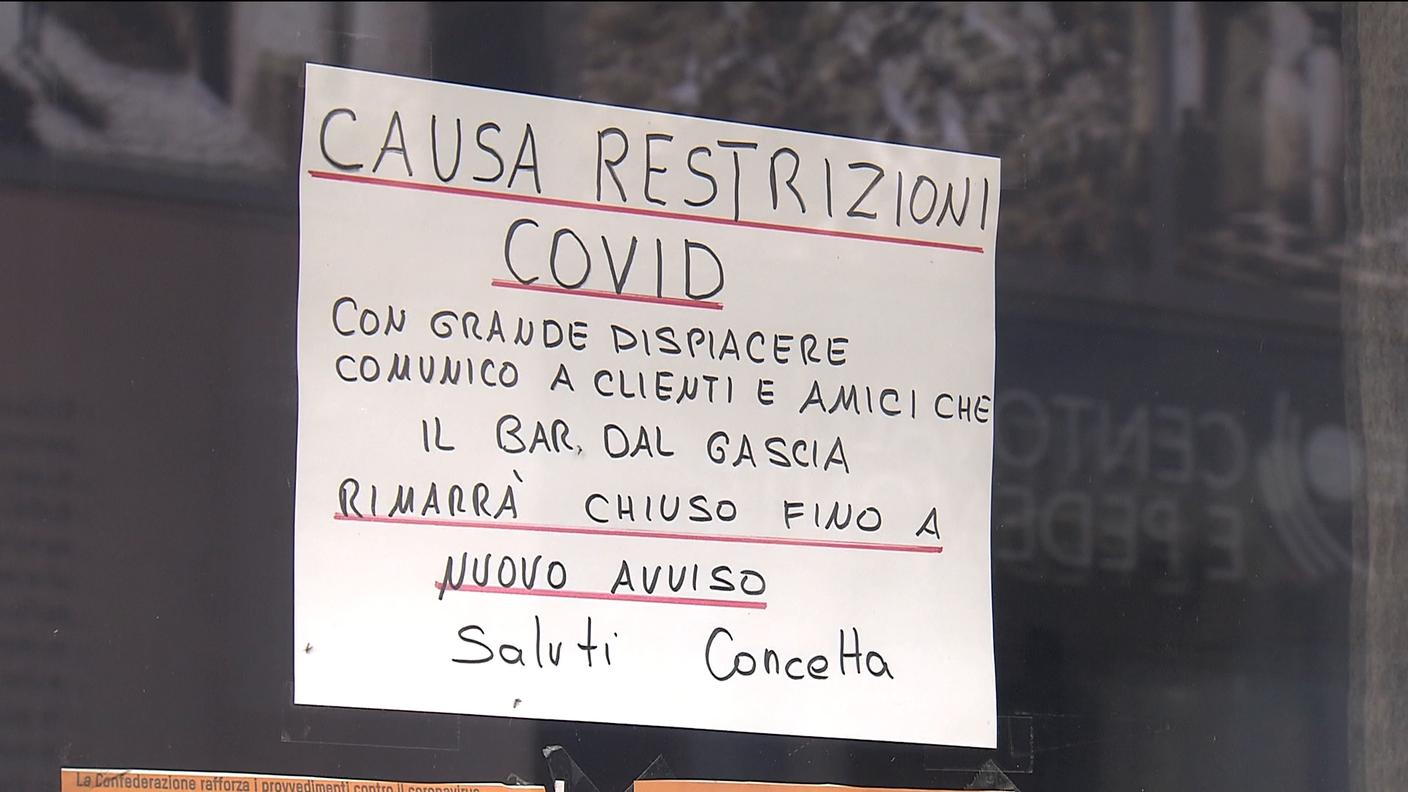 CAUSA RESTRIZIONI
COVID
CON GRANDE DISPIACERE
COMUNICO A CLIENTI E AMICI CHE
IL BAR, DAL GASCIA
RIMARRÀ CHIUSO FINO A
NUOVO AVVISO
Saluti Concetta
CENTO
E PEDE
La Confederazione rafforza i provvedimenti contro il coronavirus